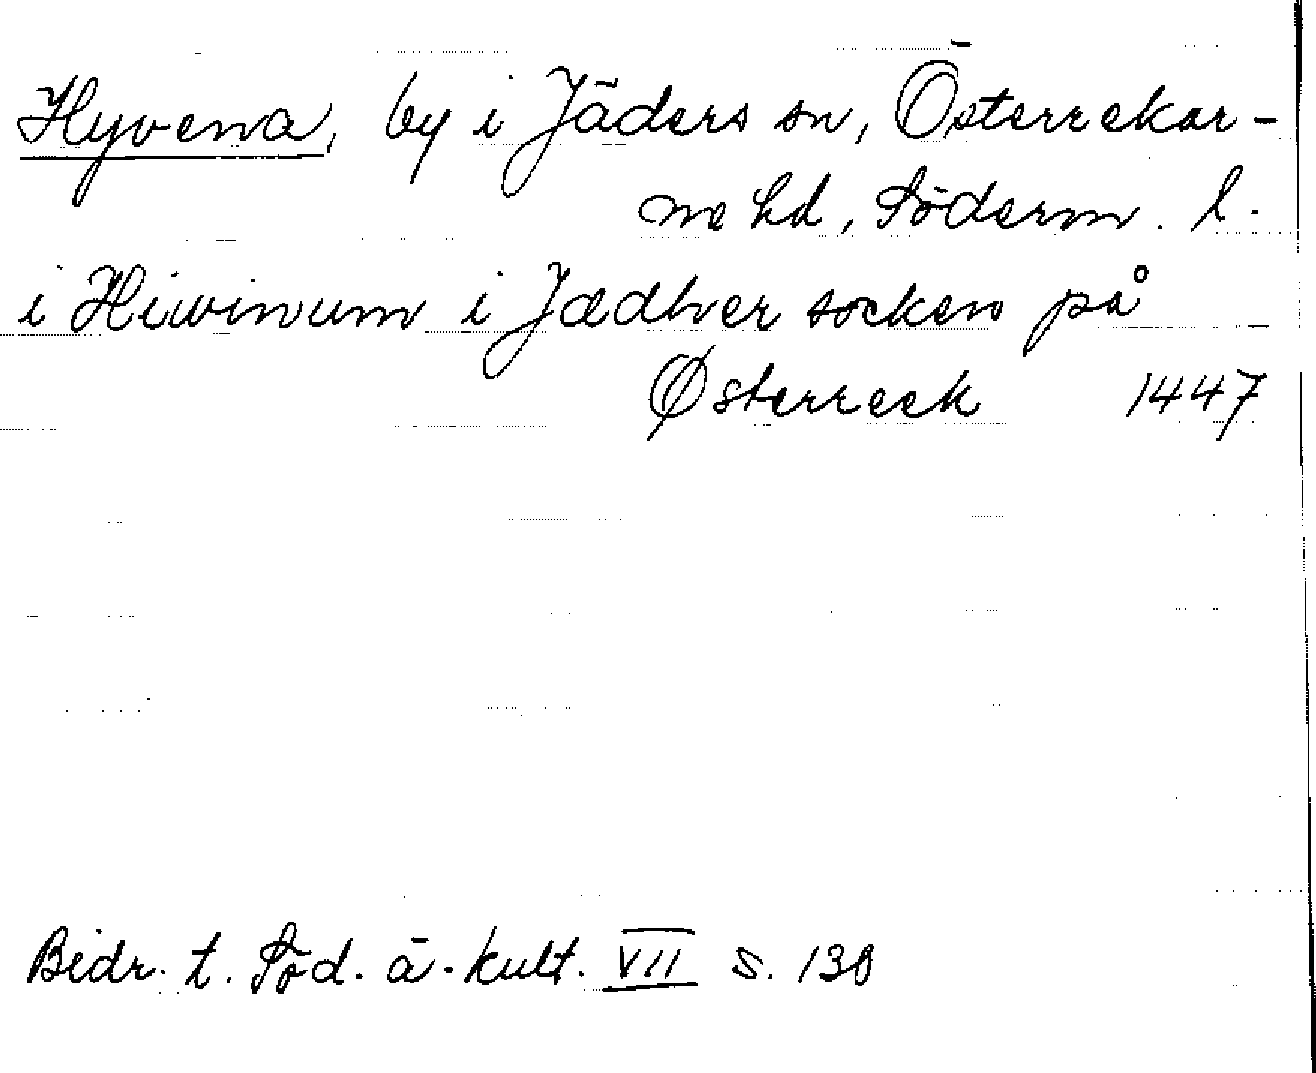 Hyvena, by i Jäders sn, Österrekar-
ne hd, Söderm. l.
i Hiwinum i Jædhver socken på
Østerreek 1447
Bidr. t. Söd. ä. kult. VII s. 130